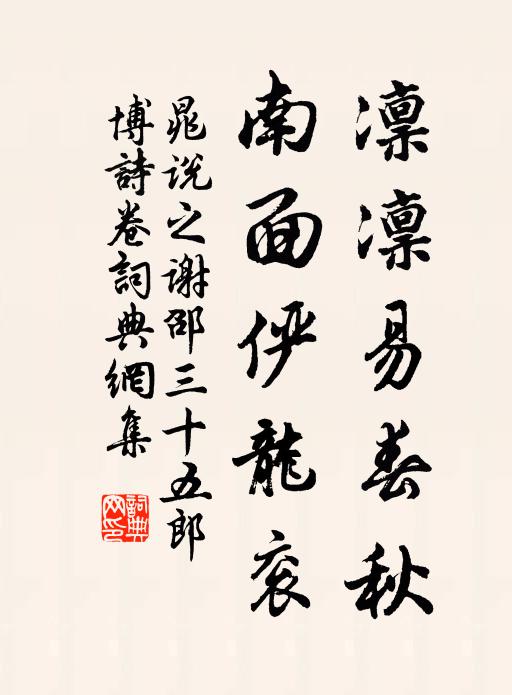 凛凛易春秋
南面俨龍衮
晁说之谢邵三十五郎
博詩卷詞典網集
詞典网印